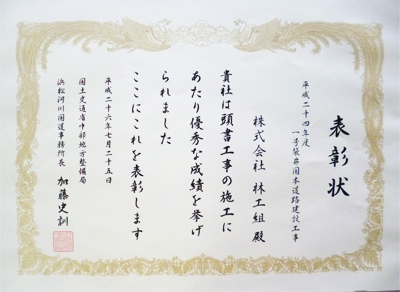 表彰状
平成二十四年度
一号袋井国本道路建設工事
株式会社 林工組 殿
貴社は頭書工事の施工に
あたり優秀な成績を挙げ
られました
ここにこれを表彰します
平成二十六年七月二十五日
国土交通省中部地方整備局
浜松河川国道事務所長 加藤史訓